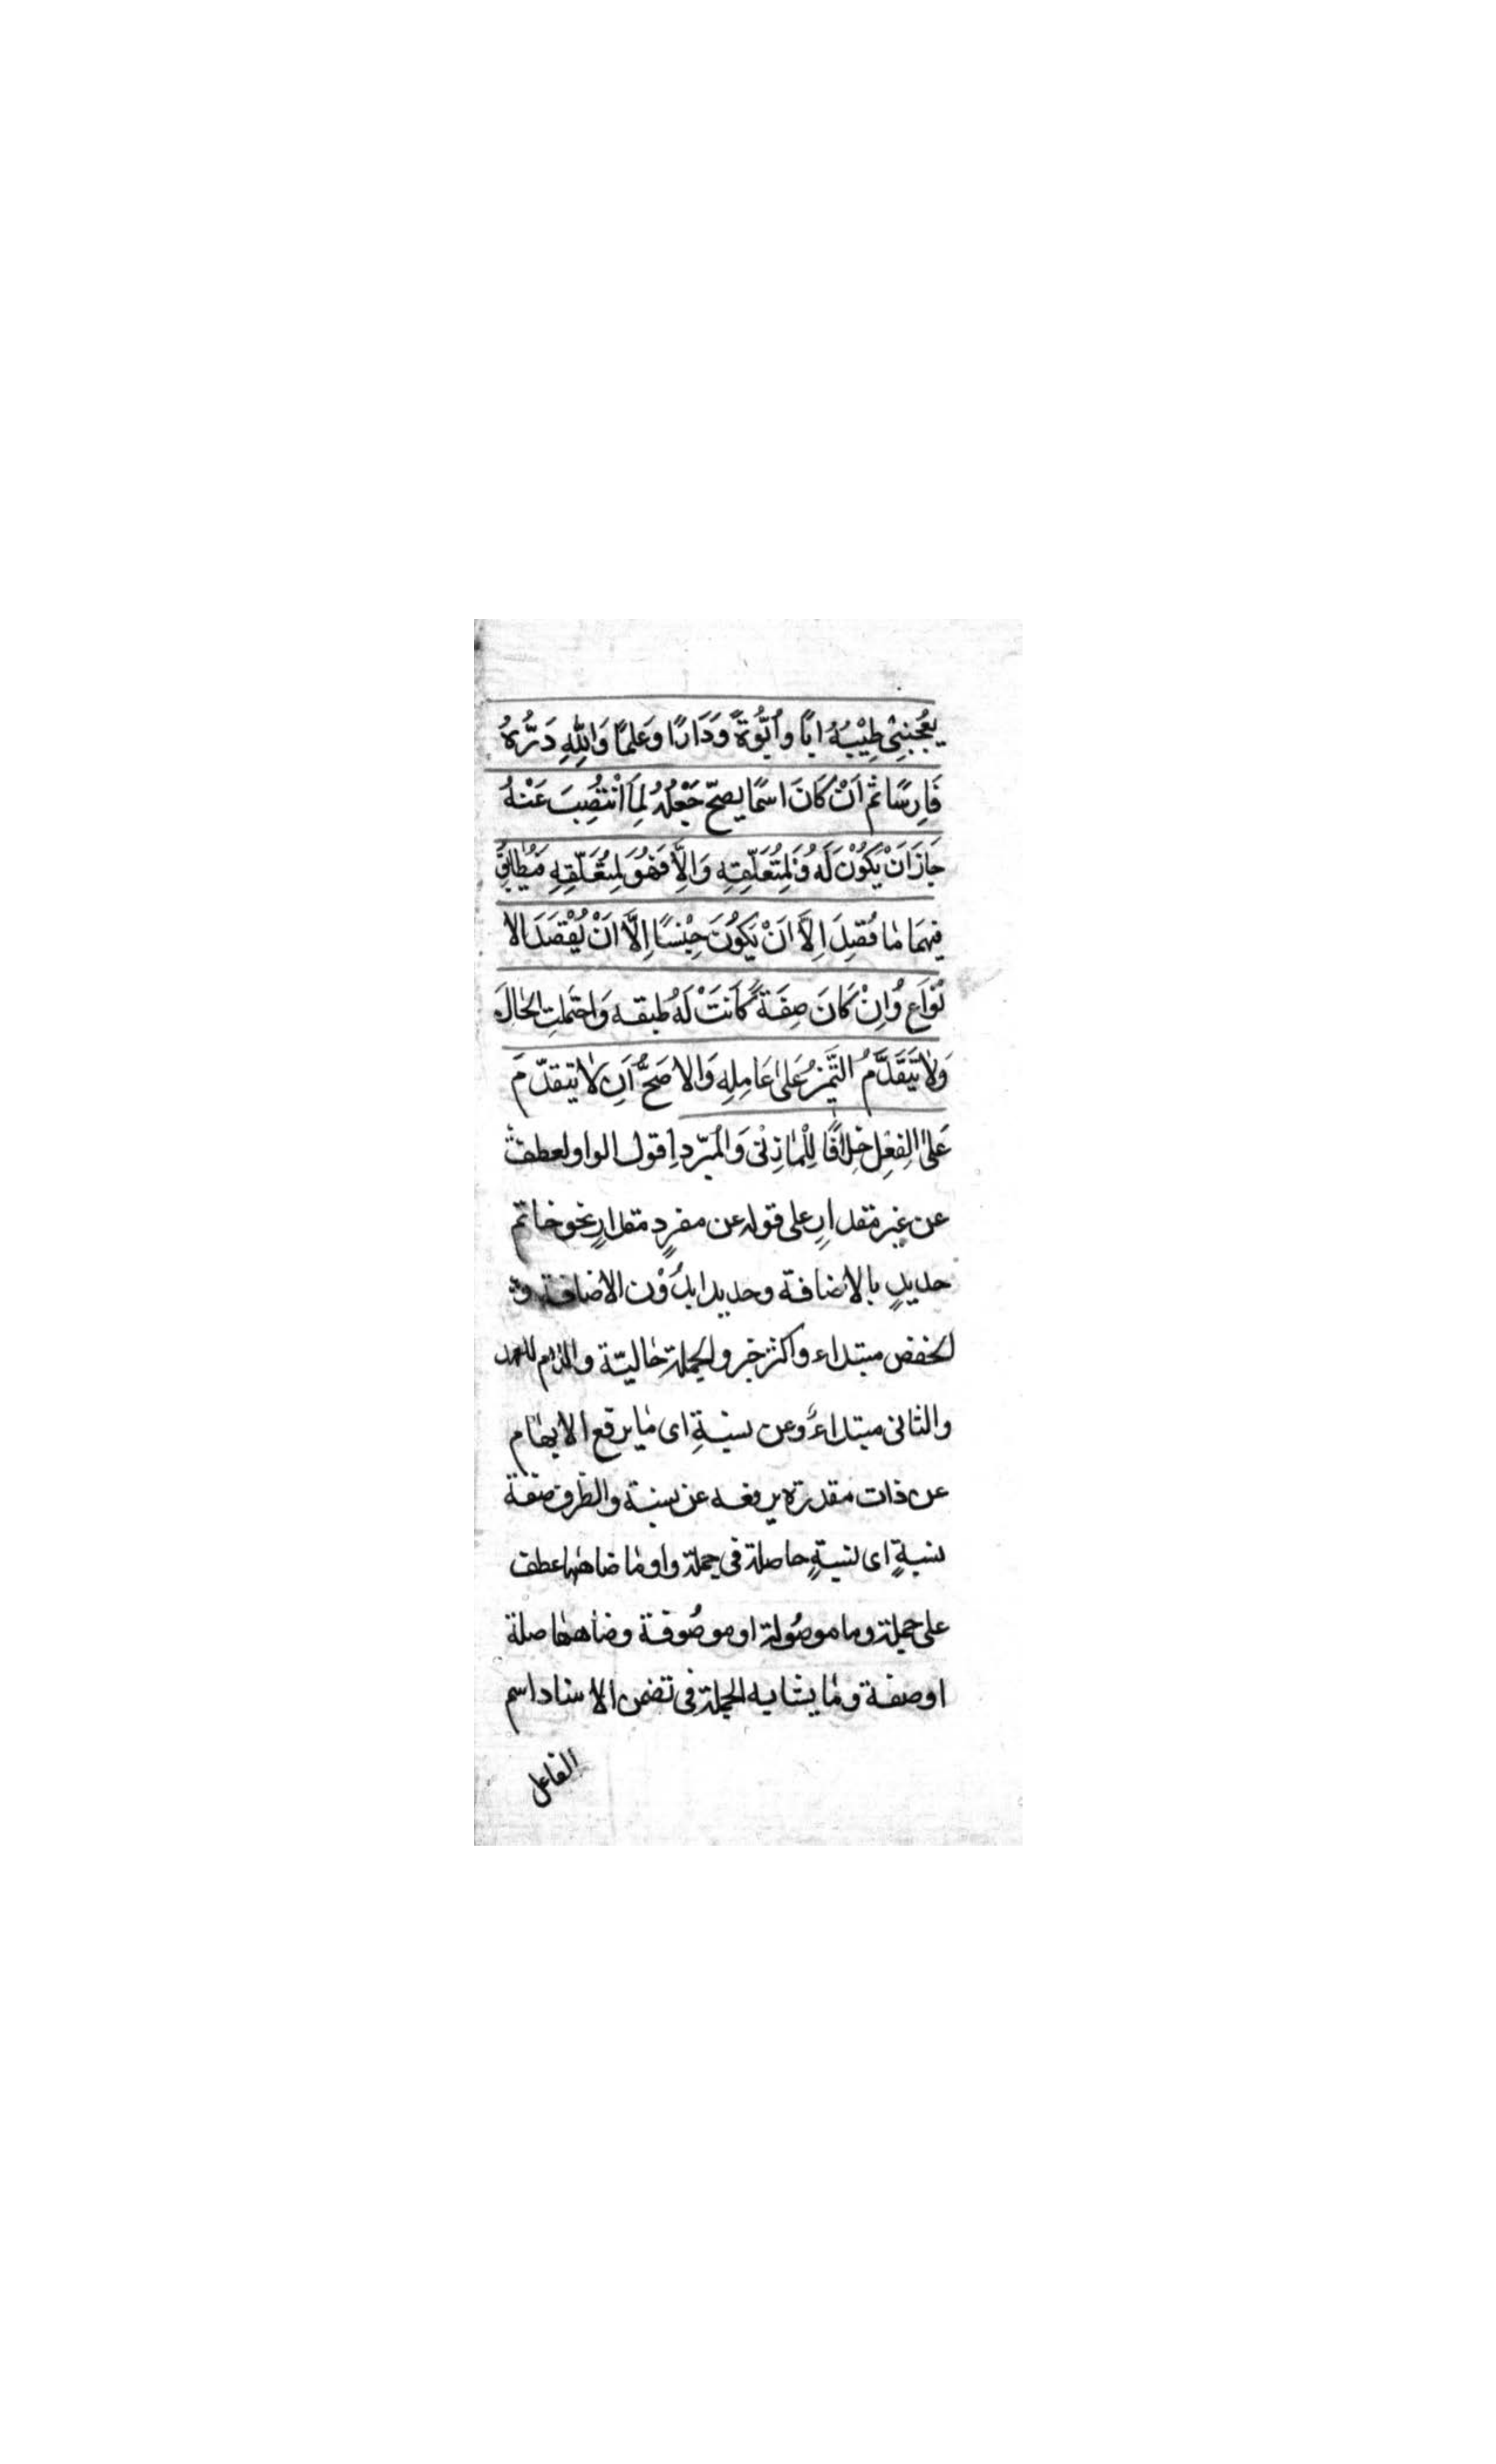 يُعْجِبُنِى طِيْبُهُ ابًا وَاُبُوَّةً وَدَارًا وَعَلمًا وَاللّٰهِ دَرُّهُ
فَارِسًا ثم اَنْ كَانَ اسمًا يصحّ جَعْلُهُ لِمَا انْتَصَبَ عَنْهُ
جَازَ اَنْ يَكُوْنَ لَهُ وَلِمُتَعَلِّقِهِ وَاِلَّا فَهُوَ لِمُتَعَلِّقِهِ فَيُطَابِقُ
فِيهمَا مَا قُصِدَ اِلَّا اَنْ يَكُوْنَ جِنْسًا اِلَّا اَنْ يُقْصَدَ الا
نْوَاعِ وَاِنْ كَانَ صِفَةً كَانَتْ لَهُ طبقه وَاحتَملتِ الحَالَ
وَلَا يَتَقَدَّمُ التَّمْيزُ عَلىٰ عَامِلِهِ وَالاصَحُّ اَنِ لَا يتقدّمَ
عَلىَ الفِعْلِ خِلَافًا لِلْمَازِنّى وَالْمُبرّدِ اقول الواو لعطف
عن غير مقدارٍ على قوله عن مفردٍ مقدارٍ نحو خاتم
حديدٍ بالاضافة وحديدا بدُوْن الاضافة و
الخفض مبتداء واكثر خبر والجملة حاليّة واللام للعهد
والثانى مبتداءُ وعن نسبةِ اى مَا يرفع الابهَام
عن ذات مقدرة يرفعه عن نسبة والظرف صفة
نسبةٍ اى نسبةٍ حاصلة فى جملة واو مَا ضاهَها عطف
على جملة وما موصُولة او موصُوفة وضاهَها صلة
او صفة ومَا يشابه الجملة فى تضمن الاسناد اسم
الفاعل